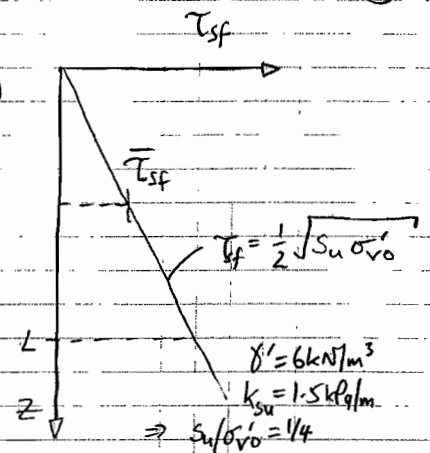 τsf
τ̄sf
τf = ½ √(Su σ'vo)
L
γ' = 6 kN/m³
ksu = 1.5 kPa/m
Z
⇒ Su/σ'vo = 1/4